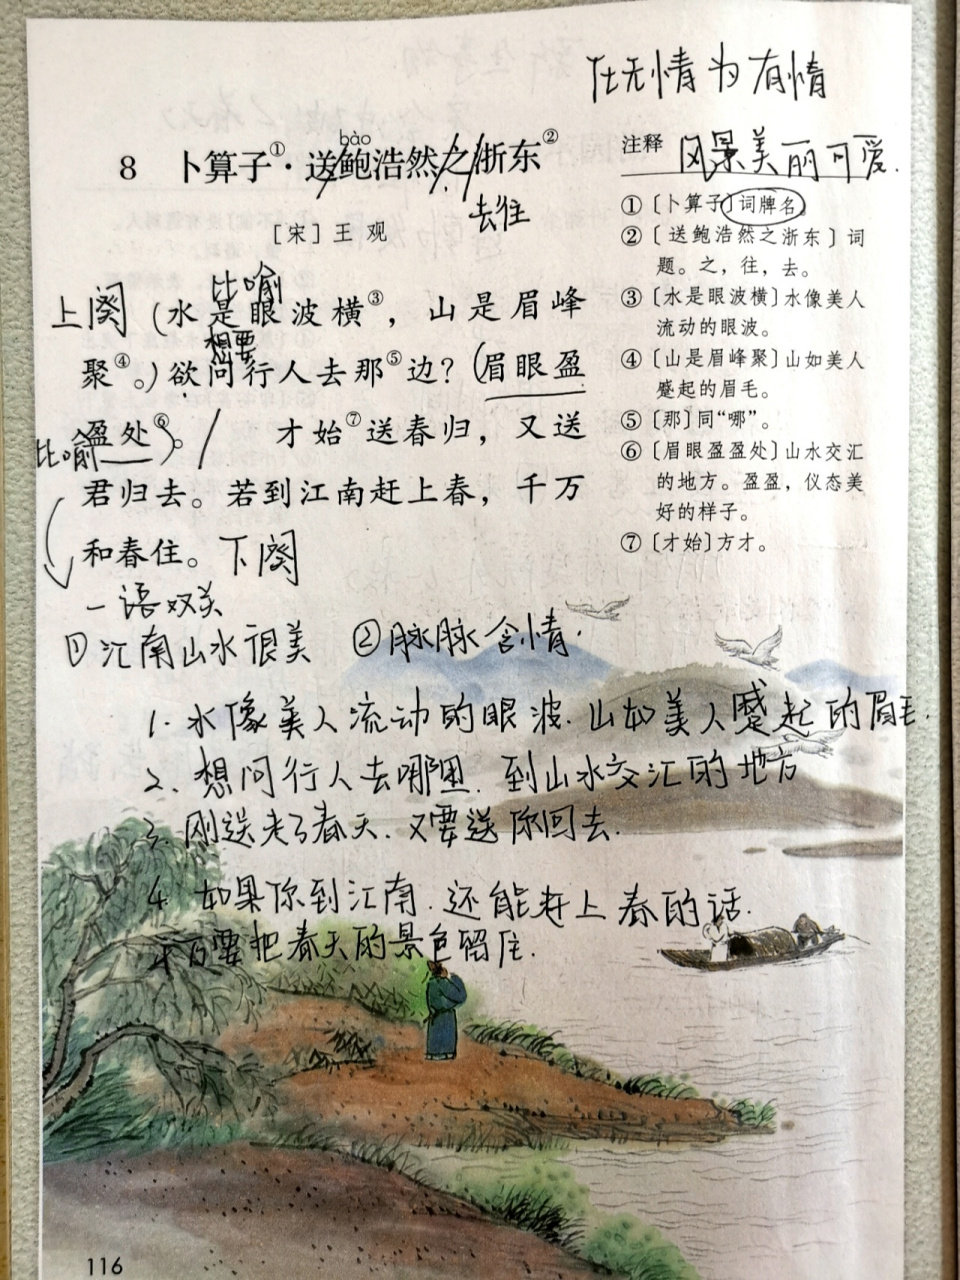 化无情为有情
风景美丽可爱.
bào
8 卜算子①·送鲍浩然之浙东②
去往
[宋] 王 观
注释
①〔卜算子〕词牌名。
②〔送鲍浩然之浙东〕词
题。之，往，去。
③〔水是眼波横〕水像美人
流动的眼波。
④〔山是眉峰聚〕山如美人
蹙起的眉毛。
⑤〔那〕同“哪”。
⑥〔眉眼盈盈处〕山水交汇
的地方。盈盈，仪态美
好的样子。
⑦〔才始〕方才。
比喻
上阕 (水是眼波横③，山是眉峰
想要
聚④。)欲问行人去那⑤边？(眉眼盈
盈处⑥)。/ 才始⑦送春归，又送
比喻
君归去。若到江南赶上春，千万
和春住。下阕
一语双关
①江南山水很美 ②脉脉含情.
1. 水像美人流动的眼波. 山如美人蹙起的眉毛.
2、想问行人去哪里. 到山水交汇的地方
3. 刚送走了春天. 又要送你回去.
4 如果你到江南. 还能赶上春的话.
千万要把春天的景色留住.
116